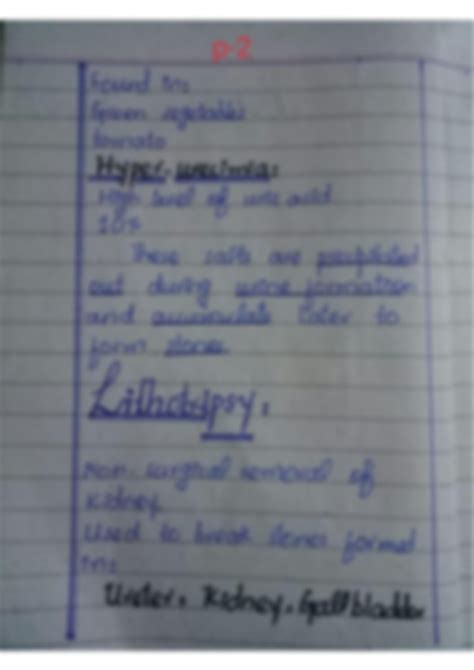 p-2
Found in:
Green vegetables
tomato
Hyper-uricimia:
High level of uric acid
10%
These salts are precipitated
out during urine formation
and accumulate later to
form stones
Lithotripsy:
Non surgical removal of
kidney
Used to break stones formed
in:
Ureter, Kidney, Gall bladder